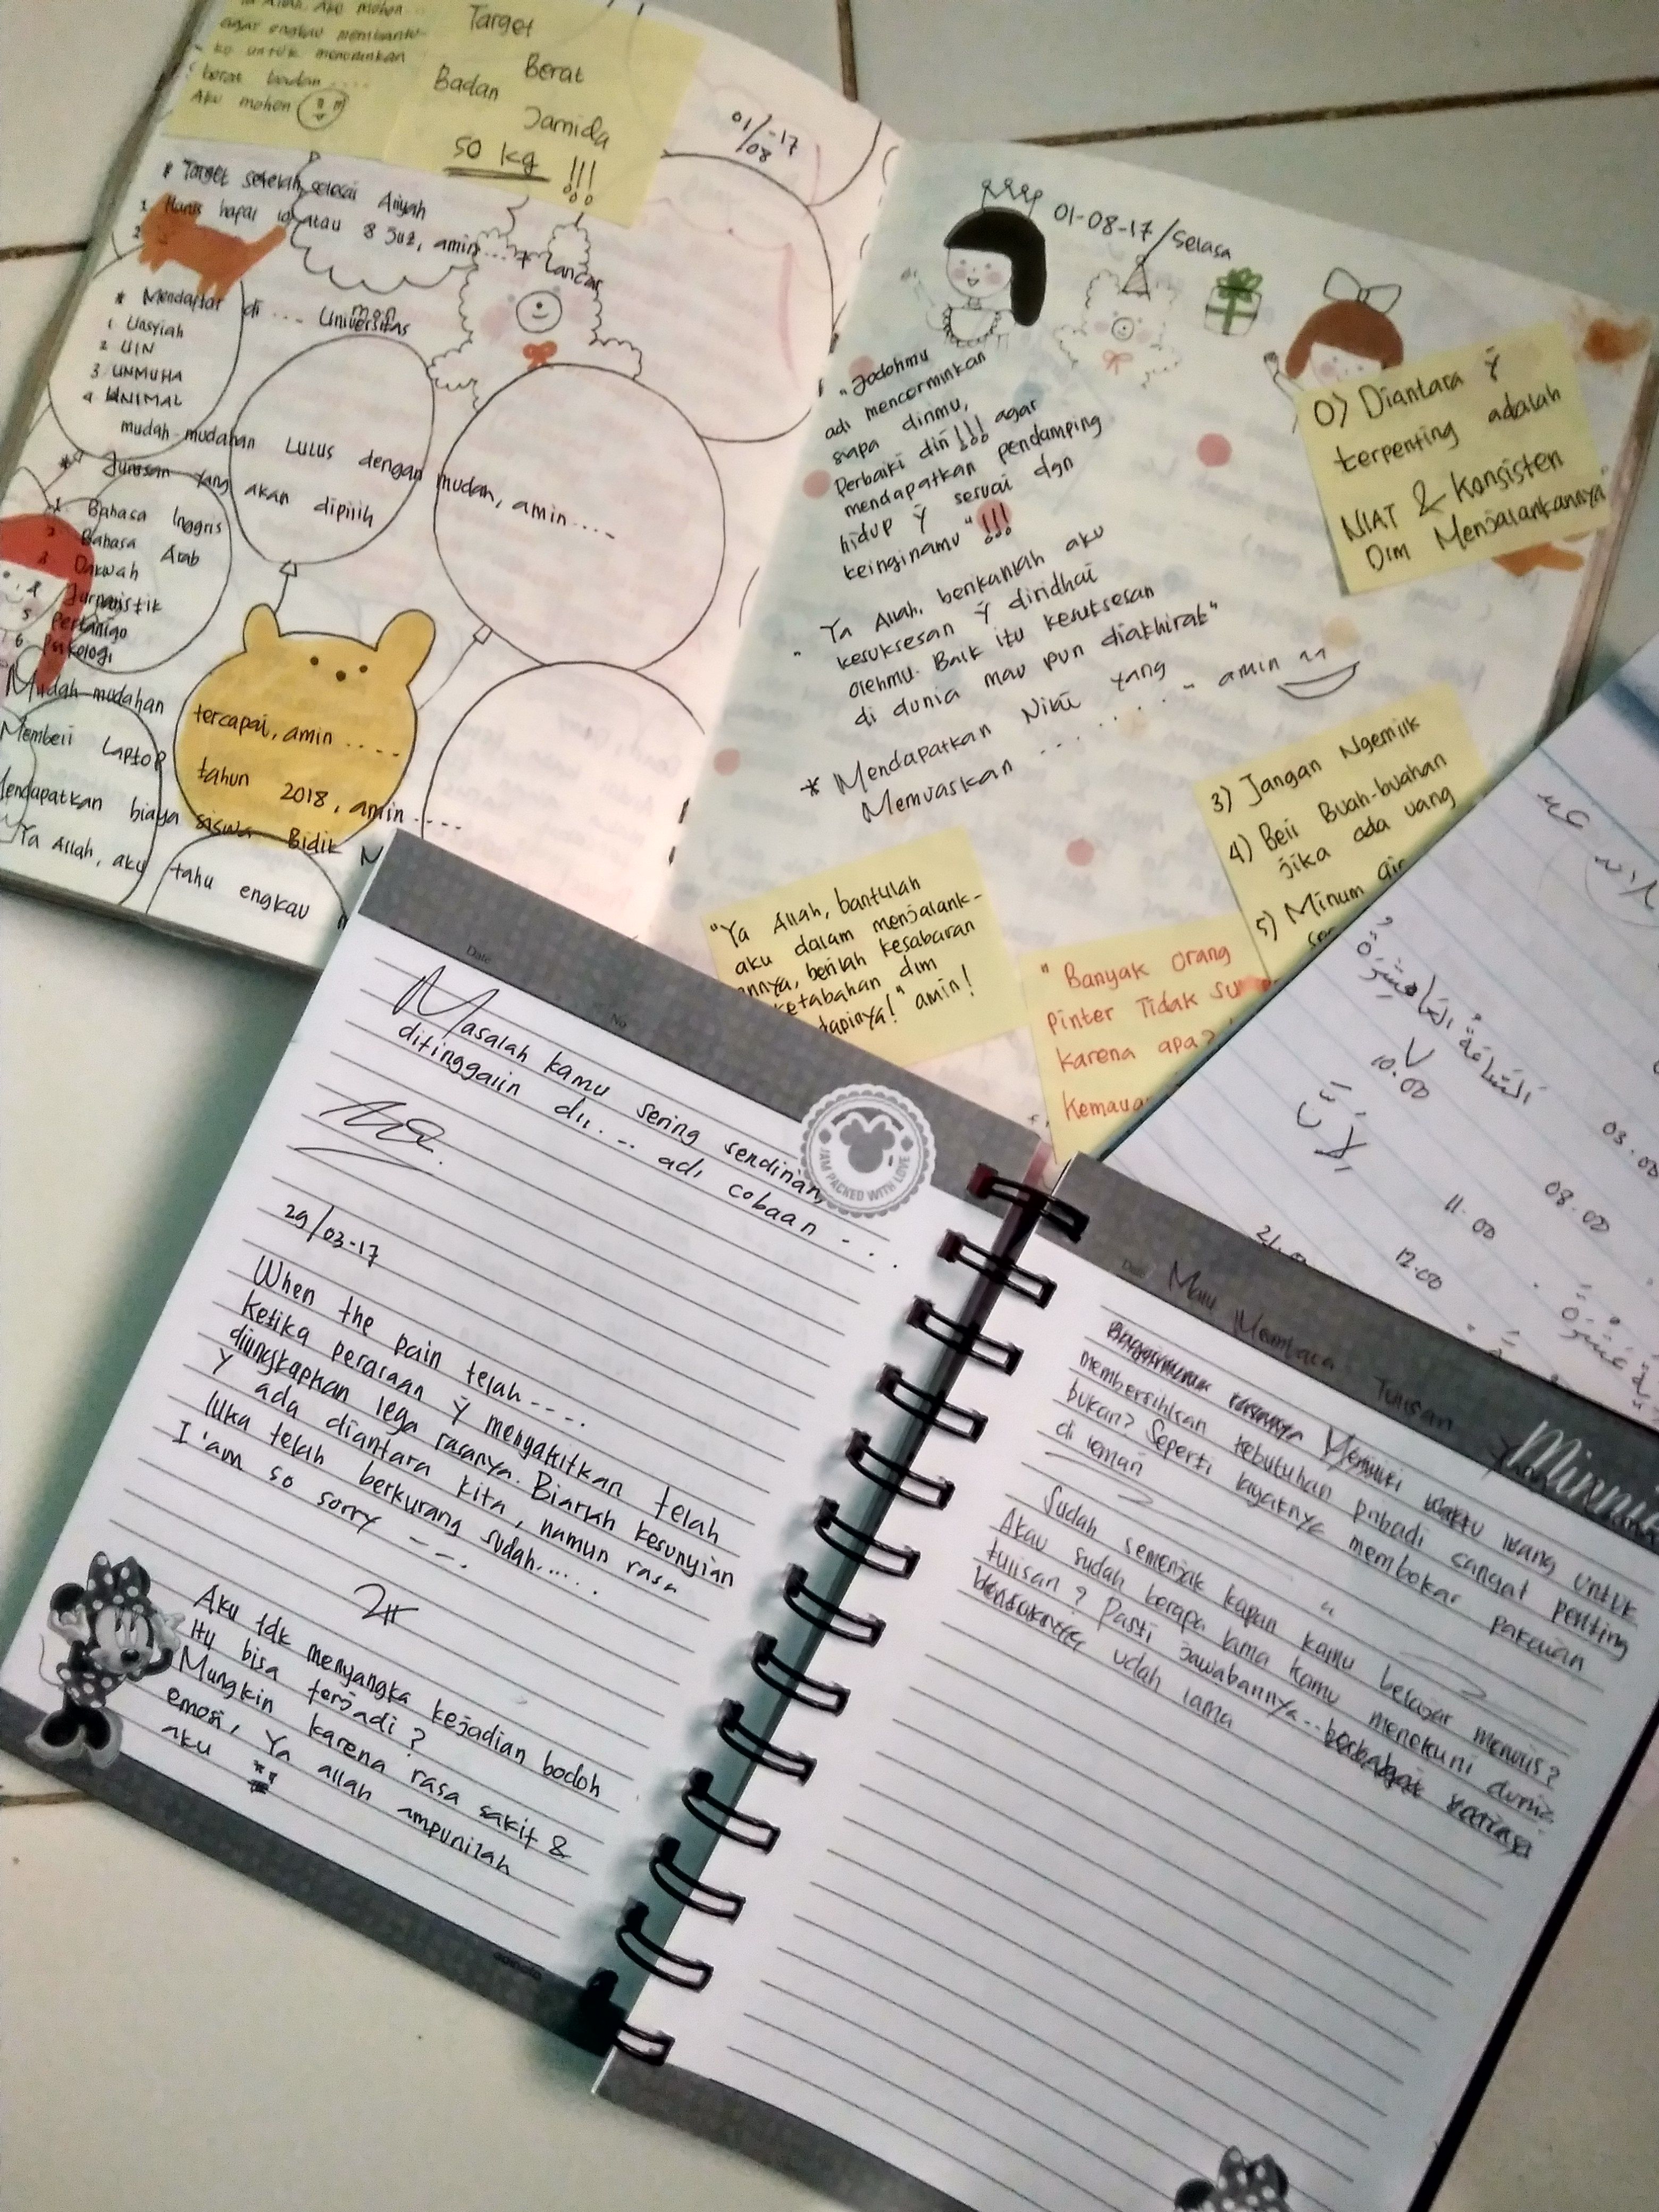 Ya Allah, Aku mohon
agar engkau membantu-
ku untuk menaikkan
berat badan....
Aku mohon
Target
Berat
Badan
Jamida
50 kg !!!
01/08-17
* Target setelah selesai Aliyah
1 Harus hapal 10 atau 8 Juz, amin.... + lancar
2
* Mendaftar di .... Universitas
1 Unsyiah
2 UIN
3 UNMUHA
4 UNIMAL
mudah-mudahan LULUS dengan mudah, amin....
* Jurusan yang akan dipilih
1 Bahasa Inggris
2 Bahasa Arab
3 Dakwah
4 Jurnalistik
5
6 Psikologi
Mudah-mudahan tercapai, amin....
Membeli Laptop tahun 2018, amin....
Mendapatkan biaya siswa Bidik M
Ya Allah, aku tahu engkau
01-08-17/Selasa
"Jodohmu
adl mencerminkan
siapa dirimu,
Perbaiki diri!!! agar
mendapatkan pendamping
hidup ÿ sesuai dgn
keinginamu"!!!
"Ya Allah, berikanlah aku
kesuksesan ÿ diridhai
olehmu. Baik itu kesuksesan
di dunia mau pun diakhirat"
* Mendapatkan Nilai yang
Memuaskan ........ amin
0) Diantara ÿ
terpenting adalah
NIAT & Konsisten
Dlm Menjalankannya
3) Jangan Ngemilk
4) Beli Buah-buahan
jika ada uang
5) Minum air
"Ya Allah, bantulah
aku dalam menjalank-
annya, berilah kesabaran
ketabahan dlm
dapinya!" amin!
"Banyak orang
pinter Tidak su
karena apa?
Kemaua
السَّاعَةُ العَاشِرَةُ
10.00
03.00
08.00
11.00
12.00
Date
No
Masalah kamu sering sendirian,
ditinggalin dll.... adl cobaan...
JAM PACKED WITH LOVE
29/03-17
When the pain telah....
Ketika perasaan ÿ menyakitkan telah
diungkapkan lega rasanya. Biarlah kesunyian
ÿ ada diantara kita, namun rasa
luka telah berkurang sudah......
I'am so sorry ---.
Aku tdk menyangka kejadian bodoh
itu bisa terjadi?
Mungkin karena rasa sakit &
emosi, Ya allah ampunilah
aku
Date
Mau Membaca Tulisan
Minnie
Memiliki waktu luang untuk
membersihkan kebutuhan pribadi sangat penting
bukan? Seperti layaknya membokar pakaian
di lemari
Sudah semenjak kapan kamu belajar menulis?
Akau sudah berapa lama kamu menekuni dunia
tulisan? Pasti jawabannya...
udah lama